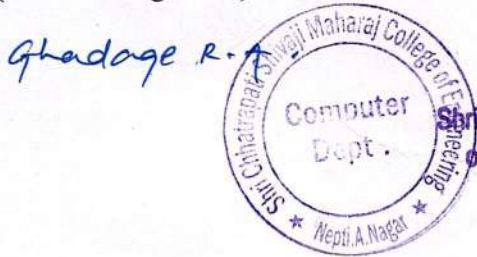 Ghadage R. A.
Shri Chhatrapati Shivaji Maharaj College of Engineering
Computer
Dept.
★ Nepti.A.Nagar ★
Shri